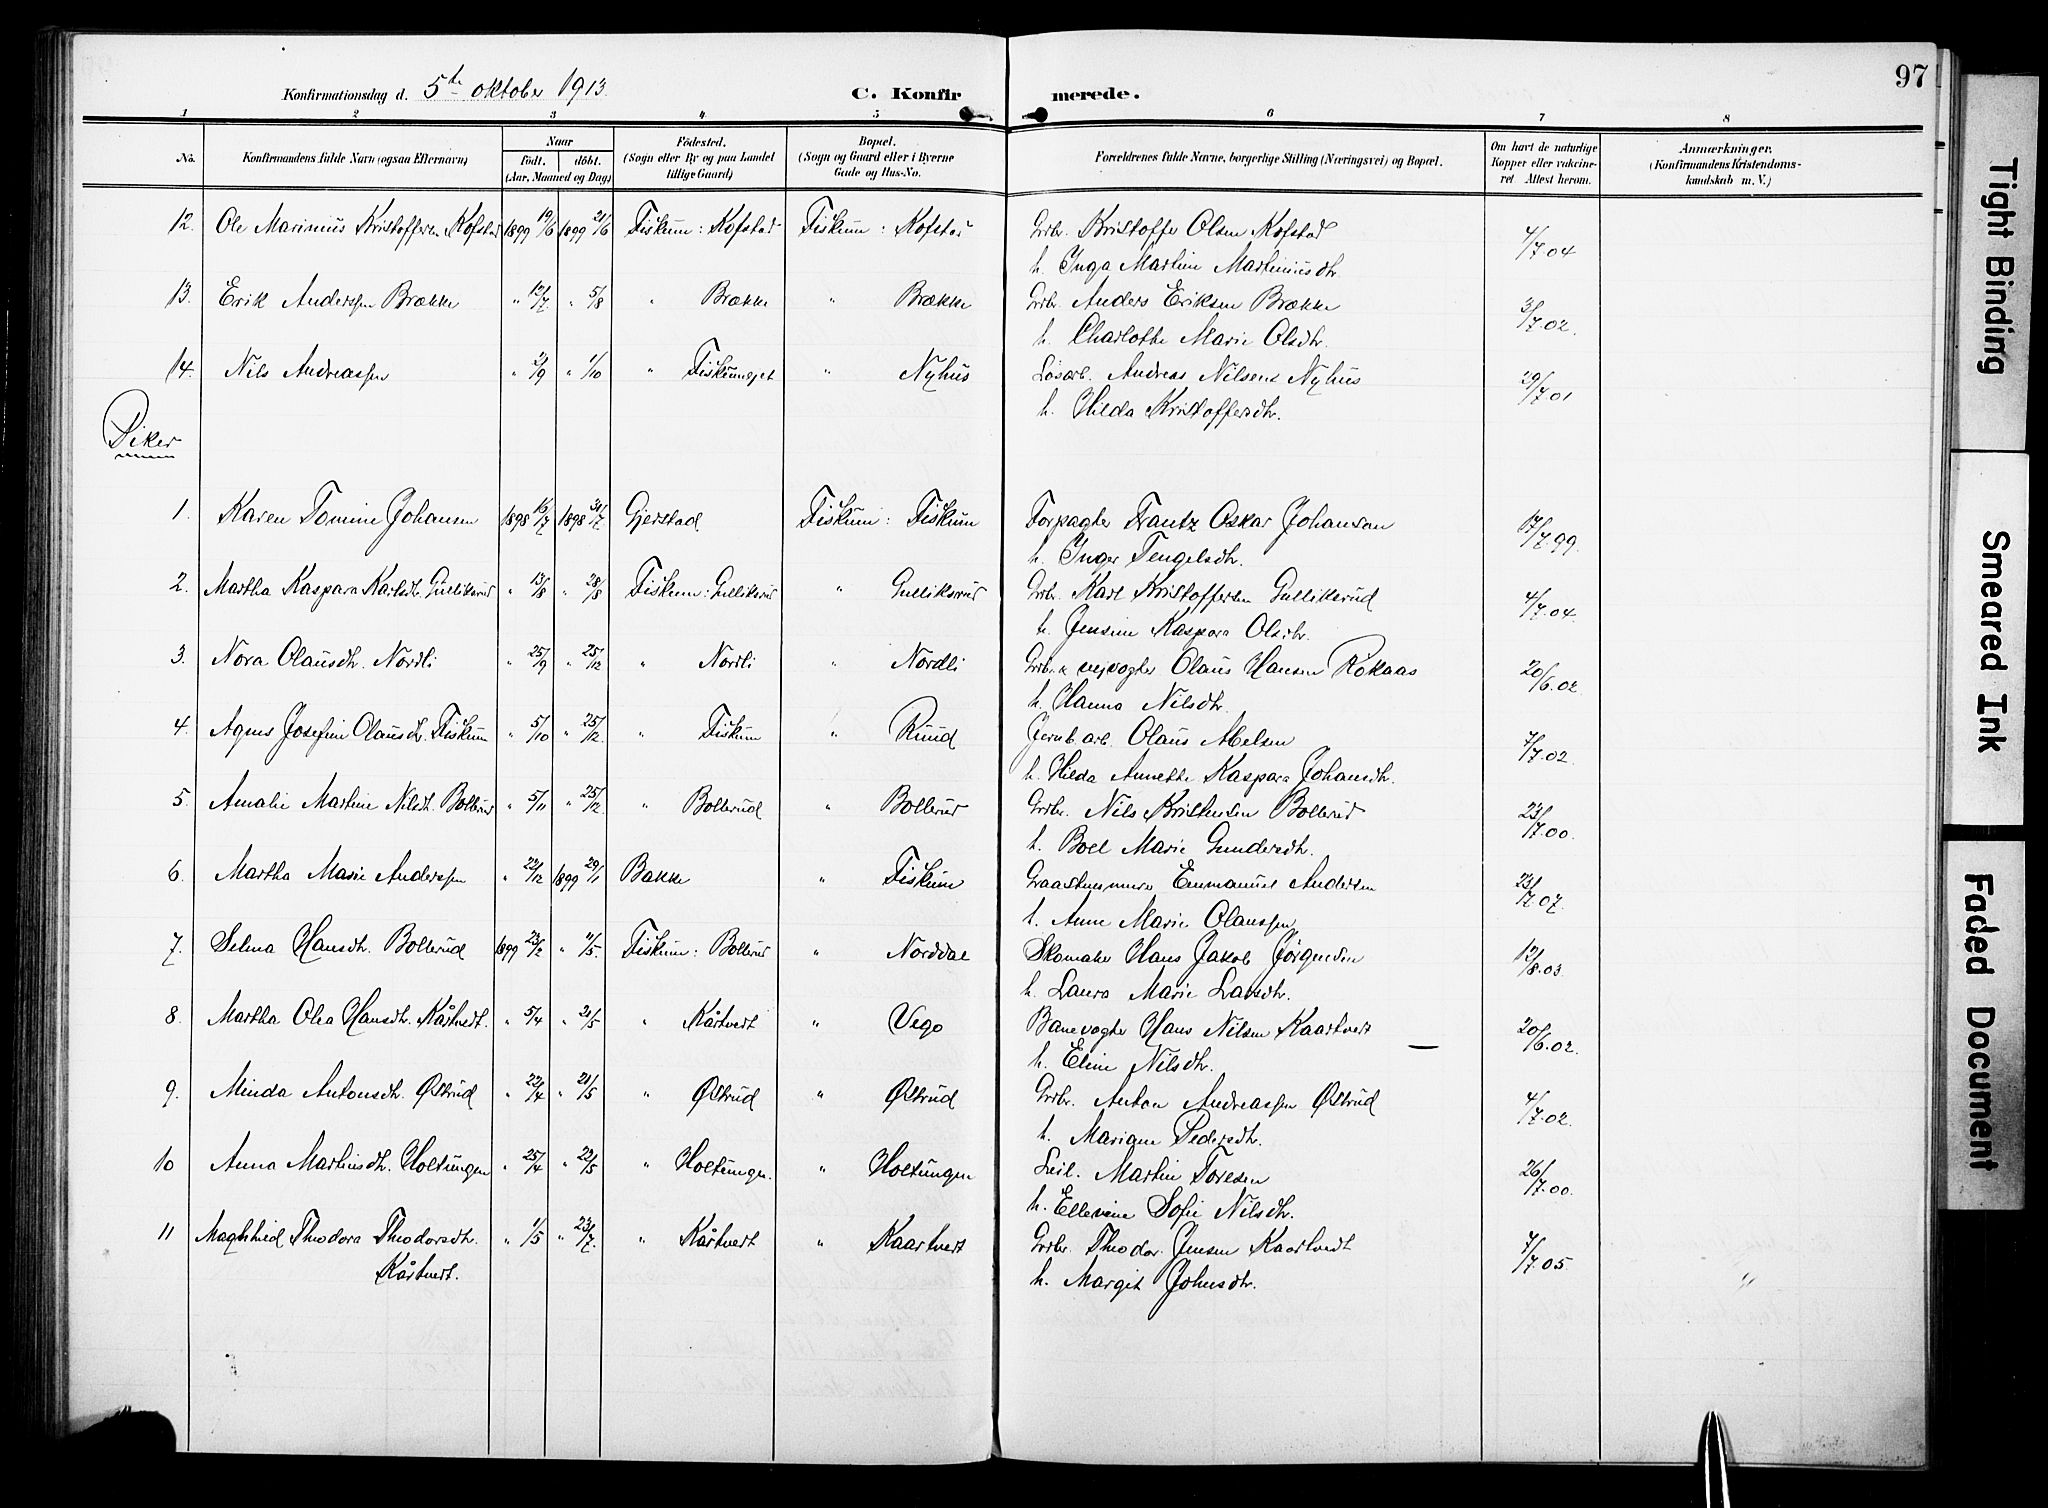 97
Konfirmationsdag d. 5te oktober 1913.
C. Konfirmerede.
1 2 3 4 5 6 7 8
No.
Konfirmandens fulde Navn (ogsaa Efternavn)
Naar
født. døbt.
(Aar, Maaned og Dag)
Fødested.
(Sogn eller By og paa Landet
tillige Gaard)
Bopæl.
(Sogn og Gaard eller i Byerne
Gade og Hus-No.
Forældrenes fulde Navne, borgerlige Stilling (Næringsvei) og Bopæl.
Om havt de naturlige
Kopper eller vakcine-
ret Attest herom.
Anmærkninger.
(Konfirmandens Kristendoms-
kundskab m. V.)
12. Ole Marinius Kristoffersen Kofstad 1899 19/6 1899 21/6 Fiskum: Kofstad Fiskum: Kofstad Grbr. Kristoffer Olsen Kofstad 4/7.04
h. Inga Martine Martiniusdtr.
13. Erik Anderssen Brække " 12/7 " 5/8 " Brække " Brække Grbr. Anders Eriksen Brække 3/7.02.
h. Charlotte Marie Olsdtr.
14. Nils Andreassen " 2/9 " 1/10 " Fiskumeiet " Nyhus Løsarb. Andreas Nilsen Nyhus 29/7.01
h. Hilda Kristoffersdtr.
Piker
1. Karen Tomine Johansen 1898 16/7 1898 31/7. Gjerstad Fiskum: Fiskum Forpagter Frantz Oskar Johanson 17/7.99.
h. Inger Tengelsdtr.
2. Martha Kaspara Karlsdtr. Gulliksrud " 13/8 " 28/8 Fiskum: Gulliksrud " Gulliksrud Grbr. Karl Kristoffersen Gulliksrud 4/7.04.
h. Jensine Kaspara Olsdtr.
3. Nora Olausdtr. Nordli " 25/9 " 25/12 " Nordli " Nordli Grbr. & veivogter Olaus Hansen Rokaas 20/6.02.
h. Hanna Nilsdtr.
4. Agnes Josefine Olausdtr. Fiskum " 5/10 " 25/12. " Fiskum " Ruud Jernb. arb. Olaus Abelsen 7/7.02.
h. Hilda Annette Kaspara Johansdtr.
5. Amalie Martine Nilsdtr. Bollerud " 5/11 " 25/12. " Bollerud " Bollerud Grbr. Nils Kristensen Bollerud 23/7.00.
h. Boel Marie Gundersdtr.
6. Martha Marie Anderssen " 22/12 1899 29/1 Bakke " Fiskum Graastensmurer Emmanuel Andersen 23/7.07.
h. Anne Marie Olaussen
7. Selma Hansdtr. Bollerud 1899 23/2 " 11/5. Fiskum: Bollerud " Norddal Skomaker Hans Jakob Jørgensen 12/8.03.
h. Laura Marie Larsdtr.
8. Martha Olea Hansdtr. Kårtvedt. " 5/4 " 21/5 " Kårtvedt " Vego Banevogter Hans Nilsen Kaartvedt 20/6.02.
h. Eline Nilsdtr.
9. Minda Antonsdtr. Østrud " 22/4 " 21/5 " Østrud " Østrud Grbr. Anton Andreassen Østrud 4/7.02.
h. Mariane Pedersdtr.
10 Anna Martinsdtr. Holtungen " 25/4 " 22/5 " Holtungen. " Holtungen Leil. Martin Toresen 26/7.00.
h. Ellevine Sofie Nilsdtr.
11 Magnhild Theodora Theodorsdtr. " 1/5 " 23/7. " Kårtvedt " Kaartvedt Grbr. Theodor Jensen Kaartvedt 7/7.05.
Kårtvedt. h. Margit Johnsdtr.
Tight Binding
Smeared Ink
Faded Document